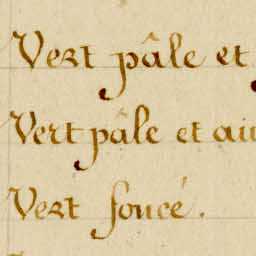 Vert pâle et
Vert pâle et au
Vert foncé.